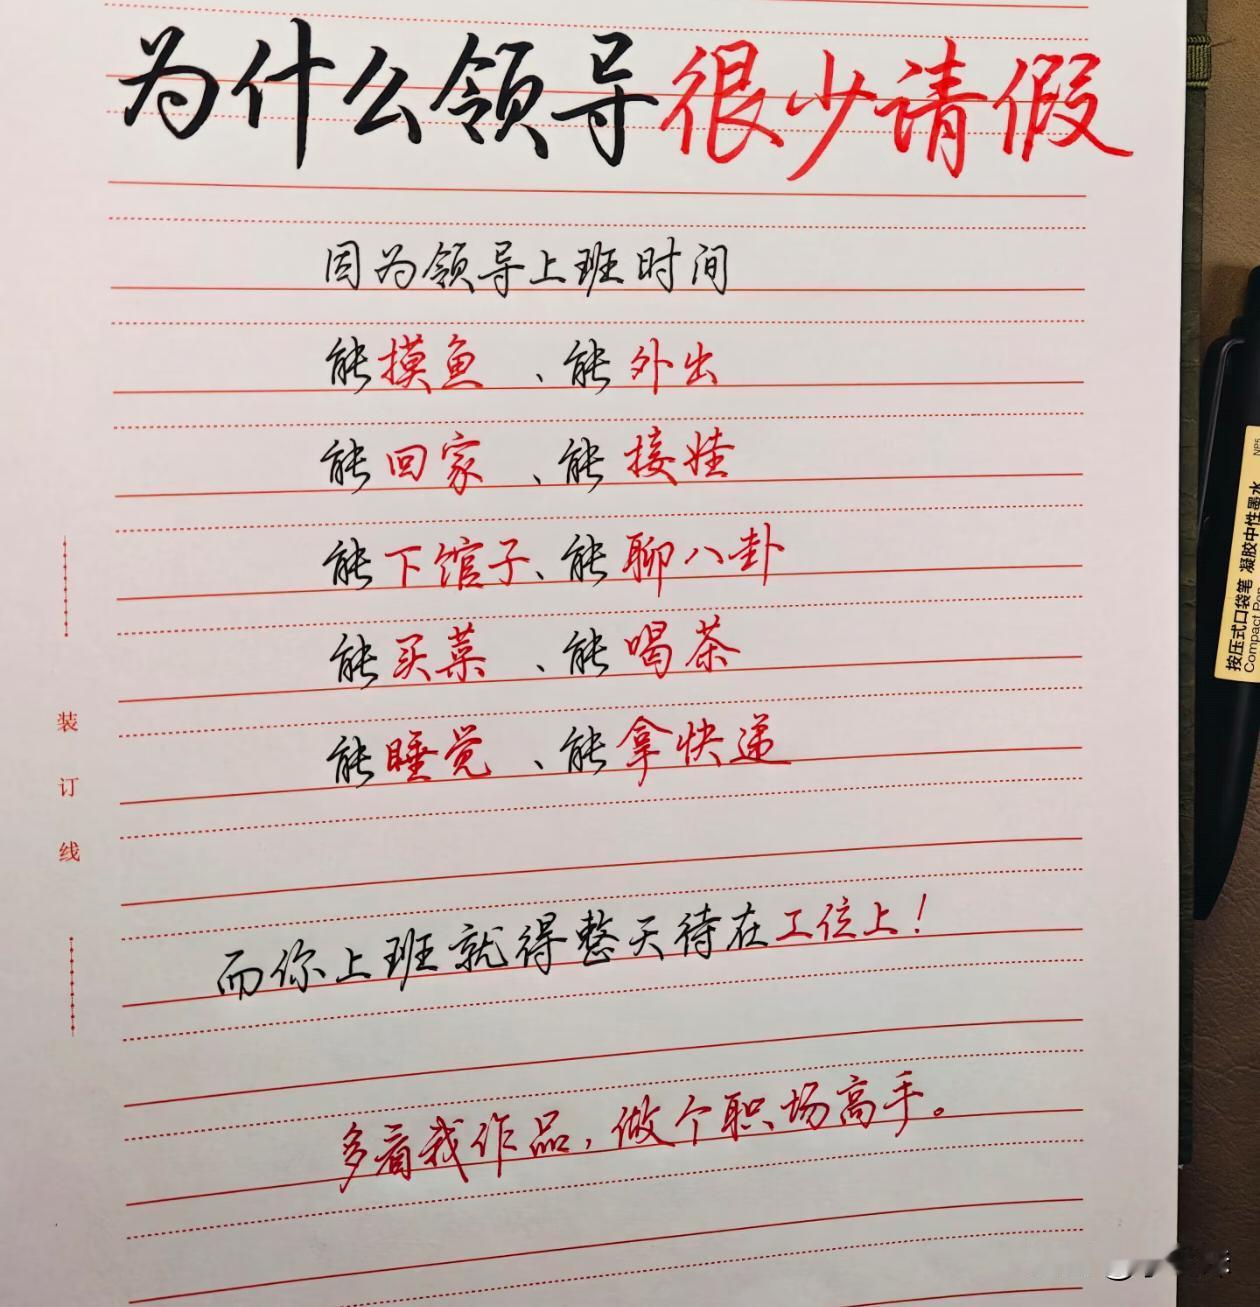 为什么领导很少请假
因为领导上班时间
能摸鱼、能外出
能回家、能接娃
能下馆子、能聊八卦
能买菜、能喝茶
能睡觉、能拿快递
而你上班就得整天待在工位上!
多看我作品,做个职场高手。
装订线
按压式口袋笔 凝胶中性墨水
Compact Pen
NP5